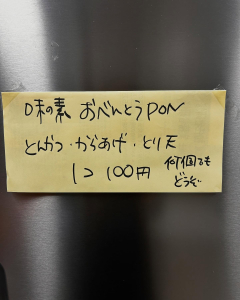 味の素 おべんとうPON
とんかつ・からあげ・とり天
1コ 100円
何個でも
どうぞ